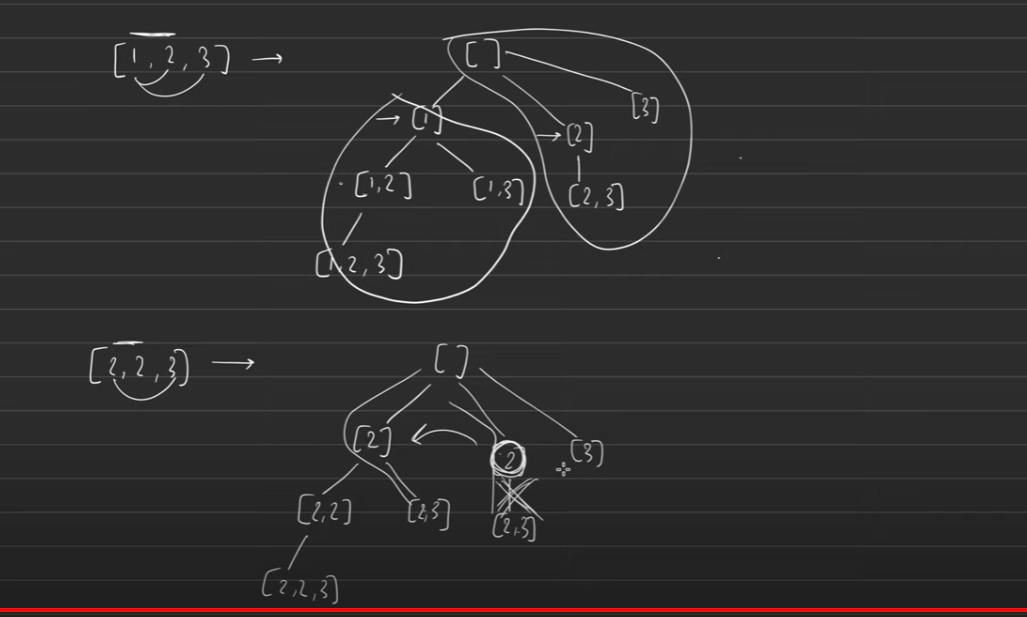 [1, 2, 3] → [ ]
[3]
[1] → [2]
[1,2] [1,3] [2,3]
[1,2,3]
[2,2,3] → [ ]
[2] 2 [3]
[2,2] [2,3] [2,3]
[2,2,3]